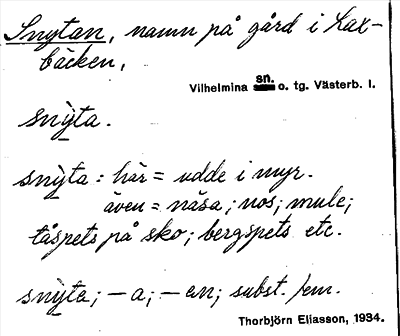 Snytan, namn på gård i Lax-
bäcken,
Vilhelmina sn. o. tg. Västerb. l.
snỳta.
snỳta: här = udde i myr.
även = näsa; nos; mule;
tåspets på sko; bergspets etc.
snỳta; – a; – en; subst. fem.
Thorbjörn Eliasson, 1934.